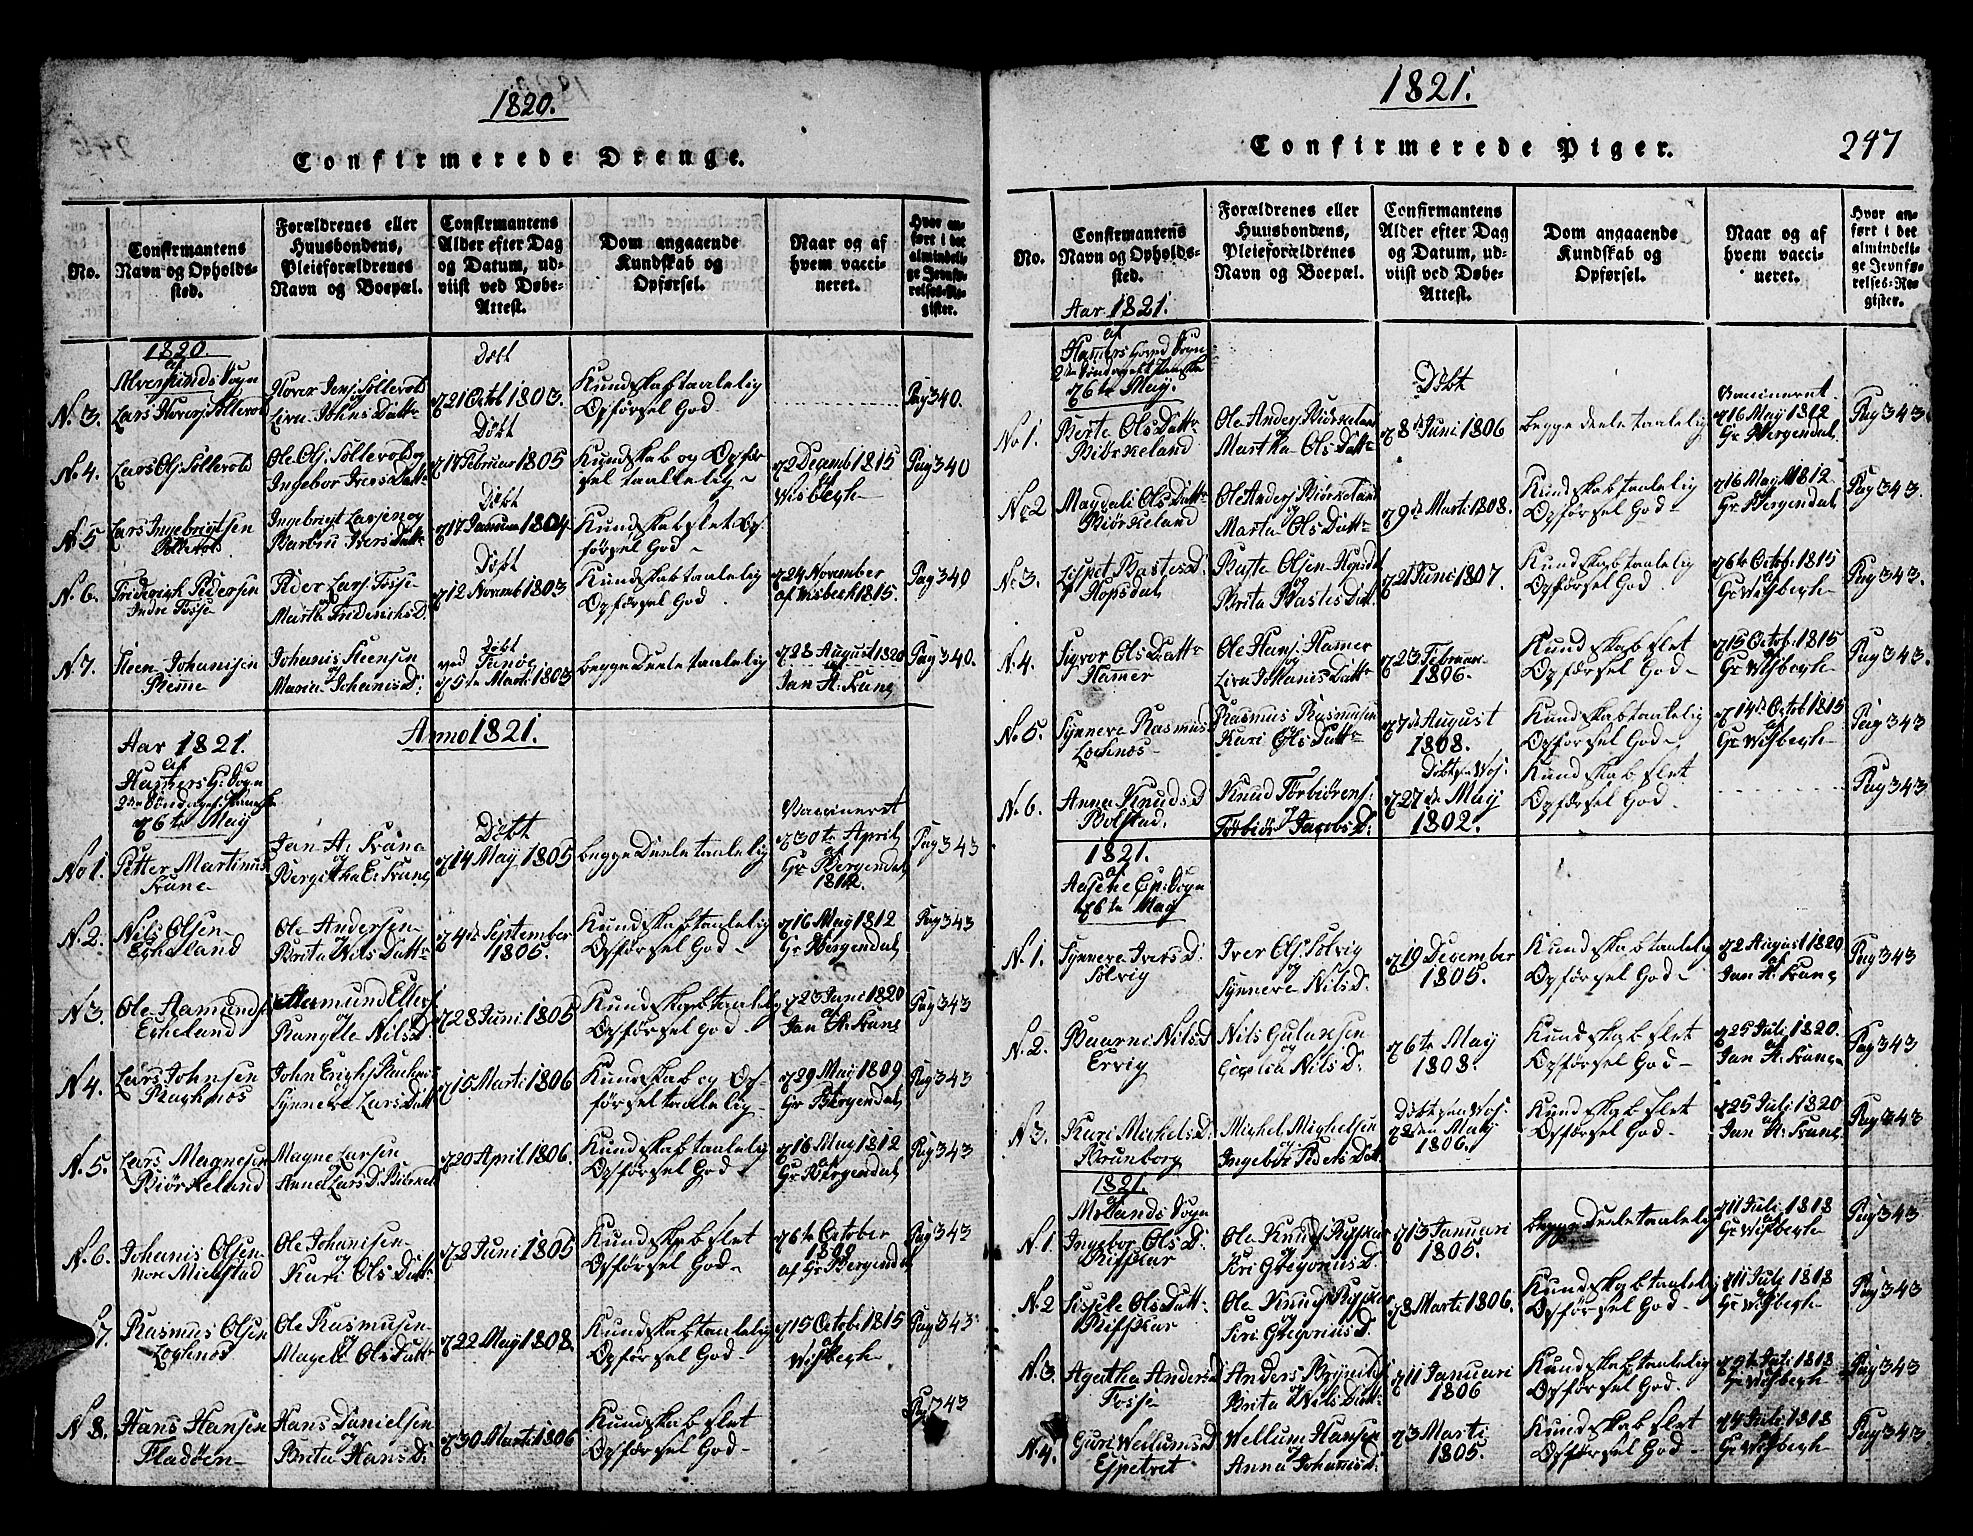 1820.
Confirmerede Drenge.
No.
Confirmantens
Navn og Opholds-
sted.
Forældrenes eller
Huusbondens,
Pleieforældrenes
Navn og Boepæl.
Confirmantens
Alder efter Dag
og Datum, ud-
viist ved Døbe-
Attest.
Dom angaaende
Kundskab og
Opførsel.
Naar og af
hvem vacci-
neret.
Hvor an-
ført i det
almindeli-
ge Jevnfø-
relses-Re-
gister.
1820.
af
Alversunds Sogn
N. 3.
Lars Haversj Sollevold
Haver Jensj Sollevold
og
Liva Johns Datt
Døbt
21 Octob 1803.
Kundskab taalelig
Opførsel God
Pag 340.
N. 4.
Lars Olsj Sollevold
Ole Olsj Sollevold og
Ingebor Ivers Datt
Døbt
17 Februar 1805
Kundskab og Opfør
sel taalelig
2 Decemb 1815
af
Wisbegh
Pag 340
N. 5
Lars Ingebrigtsen
Sollevold
Ingebrigt Larsen og
Barbru Ivers Datt
Døbt
17 Januar 1804
Kundskab slet Op
førsel God
N. 6.
Friderigh Pedersen
Indre Fosse
Peder Larsj Fosse
og
Marta Frederichs D.
Døbt
12 Novemb 1803
Kundskab taalelig
Opførsel God
24 November
af Wisbech 1815.
Pag 340
N. 7.
Steen Johanisen
Remme
Johanis Steensen
og
Maria Johanis D:
Døbt
ved
5te Marti 1803
begge Deele taalelig
28 August 1820
af
Jan A. Krane
Pag 340.
Aar 1821.
Anno 1821.
af
Hammers H: Sogn
6te May
No 1.
Petter Martinus
Krane
Jan A: Krane
og
Bergitha E: Krane
Døbt
14 May 1805
begge Deele taalelig
Vaccineret
30te April
af
Hr Bergendal
1812.
Pag 343
N. 2.
Nils Olsen
Eskeland
Ole Andersen
og
Brita Nils Datt
4de September
1805.
Kundskab taalelig
Opførsel God
16 May 1812
af
Hr Bergendal
Pag 343
N. 3.
Ole Aamunds
Eskeland
Aamund Ellers
og
Rangele Nils D.
28 Juni 1805
Kundskab taalelig
Opførsel God
23 Juni 1820
af
Jan A. Krane
Pag 343
N. 4.
Lars Johnsen
Raghnøs
John Erighs Raknøs
og
Synneve Lars Datt
15 Marti 1806
Kundskab og Op-
førsel taalelig
29 May 1809
af
Hr Bergendal
Pag 343
N. 5.
Lars Magnesen
Biørkeland
Magne Larsen
og
Anna Lars D. Biørkel
20 April 1806.
Kundskab taalelig
Opførsel God
16 May 1812
af
Hr Bergendal
Pag 343
N. 6.
Johanis Olsen
nore Mielstad
Ole Johanisen
og
Kari Ols Datt
28 Juni 1805
Kundskab slet
Opførsel God
6te October
af Hr Bergendal
Pag 343
7.
Rasmus Olsen
Loghnøs
Ole Rasmusen
og
Magele Ols Datt
22 May 1808.
Kundskab taalelig
Opførsel God
15 Octob: 1815
af
Wisbegh
Pag 343
N. 8.
Hans Hansen
Fladøen
Hans Danielsen
og
Brita Hans D.
30 Marti 1806
Kundskab slet
Opførsel God
Pag 343
1821.
Confirmerede Piger.
247
No.
Confirmantens
Navn og Opholds-
sted.
Forældrenes eller
Huusbondens,
Pleieforældrenes
Navn og Boepæl.
Confirmantens
Alder efter Dag
og Datum, ud-
viist ved Døbe-
Attest.
Dom angaaende
Kundskab og
Opførsel.
Naar og af
hvem vacci-
neret.
Hvor an-
ført i det
almindeli-
ge Jevnfø-
relses-Re-
gister.
Aar 1821.
af
Hamers Hoved Sogn
6te May.
No 1.
Berte Ols Datt
Biørkeland
Ole Andersj Biørkeland
og
Martha Ols Datt
Døbt
8de Juni 1806
begge deele taalelig
Vaccineret
16 May 1812
Hr Bergendal
Pag 343
No 2
Magdali Ols Datt
Biørkeland
Ole Andersj Biørkeland
og
Marta Ols Datt
9de Marti 1808.
Kundskab taalelig
Opførsel God
16 May 1812.
Hr Bergendal
Pag 343.
No 3.
Lispet Bastes D:
Ropsdal
Baste Olsen Ropsdal
og
Brita Bastes Datt
21 Juni 1807.
Kundskab taalelig
Opførsel God
6te Octob: 1815
af
Hr Wisbergh
Pag 343.
N. 4.
Sigvor Ols Datt
Hamer
Ole Hansj Hamer
og
Liva Johanis Datt
23 Februar
1806.
Kundskab slet
Opførsel God
15 Octob: 1815
af
Hr Wisbergh
Pag 343.
No 5.
Synneve Rasmus D
Loghnøs
Rasmus Rasmusen
og
Kari Ols Datt
7de August
1808.
Kundskab taalelig
Opførsel God
14de Octob 1815
af
Hr Wisbergh
Pag 343
N. 6.
Anna Knuds D
Bolstad.
Knud Torbiørens.
og
Torbiør Jacobs D:
Døbt paa Vos.
27de May
1802.
Kundskab slet
Opførsel God
Pag 343
1821.
af
Aasene Cap: Sogn
6te May
N. 1.
Synneve Ivers D:
Solvig
Iver Olsj Solvig
og
Synneve Nils D.
19 December
1805.
Kundskab taalelig
Opførsel God
2 August 1820
af
Jan A. Krane
Pag 343
N. 2.
Baarni Nils D
Ervig
Nils Gulansen
og
Nils D:
6te May
1808.
Kundskab slet
Opførsel God
25 Juli 1820.
af
Jan A. Krane
Pag 343
N. 3.
Kari Mickels D.
Brunborg
Mighel Mighelsen
og
Ingebor Peders Datt
Døbt paa Vos:
2den May
1806.
Kundskab slet
Opførsel God
25 Juli 1820
af
Jan A. Krane
Pag 343
1821.
af
Mælands Sogn
N. 1.
Ingebor Ols D.
Rifskar
Ole Knudsj Ryskar
og
Siri Gregorius D.
13 Januari
1805.
begge Deele taalelig
11 Juli 1818
af
Hr Wisbergh
Pag 343
N. 2
Sissele Ols Datt
Rifskar
Ole Knuds Ryskar
og
Siri Gregorius D.
8 Marti 1806.
Kundskab taalelig
Opførsel God
11 Juli 1818
af
Hr Wisbergh
Pag 343
N. 3
Agatha Anders D
Fosse
Anders Brynilds
og
Brita Nils Datt
11 Januari
1806
Kundskab taalelig
Opførsel God
Juli 1818
Hr Wisbergh
Pag 343
N. 4.
Guri Wellums D
Espetvet
Wellum Hansen
og
Anna Johannis D:
3 Marti
1805.
Kundskab slet
Opførsel God
4 Juli 1818
af
Hr Wisbergh
Pag 343